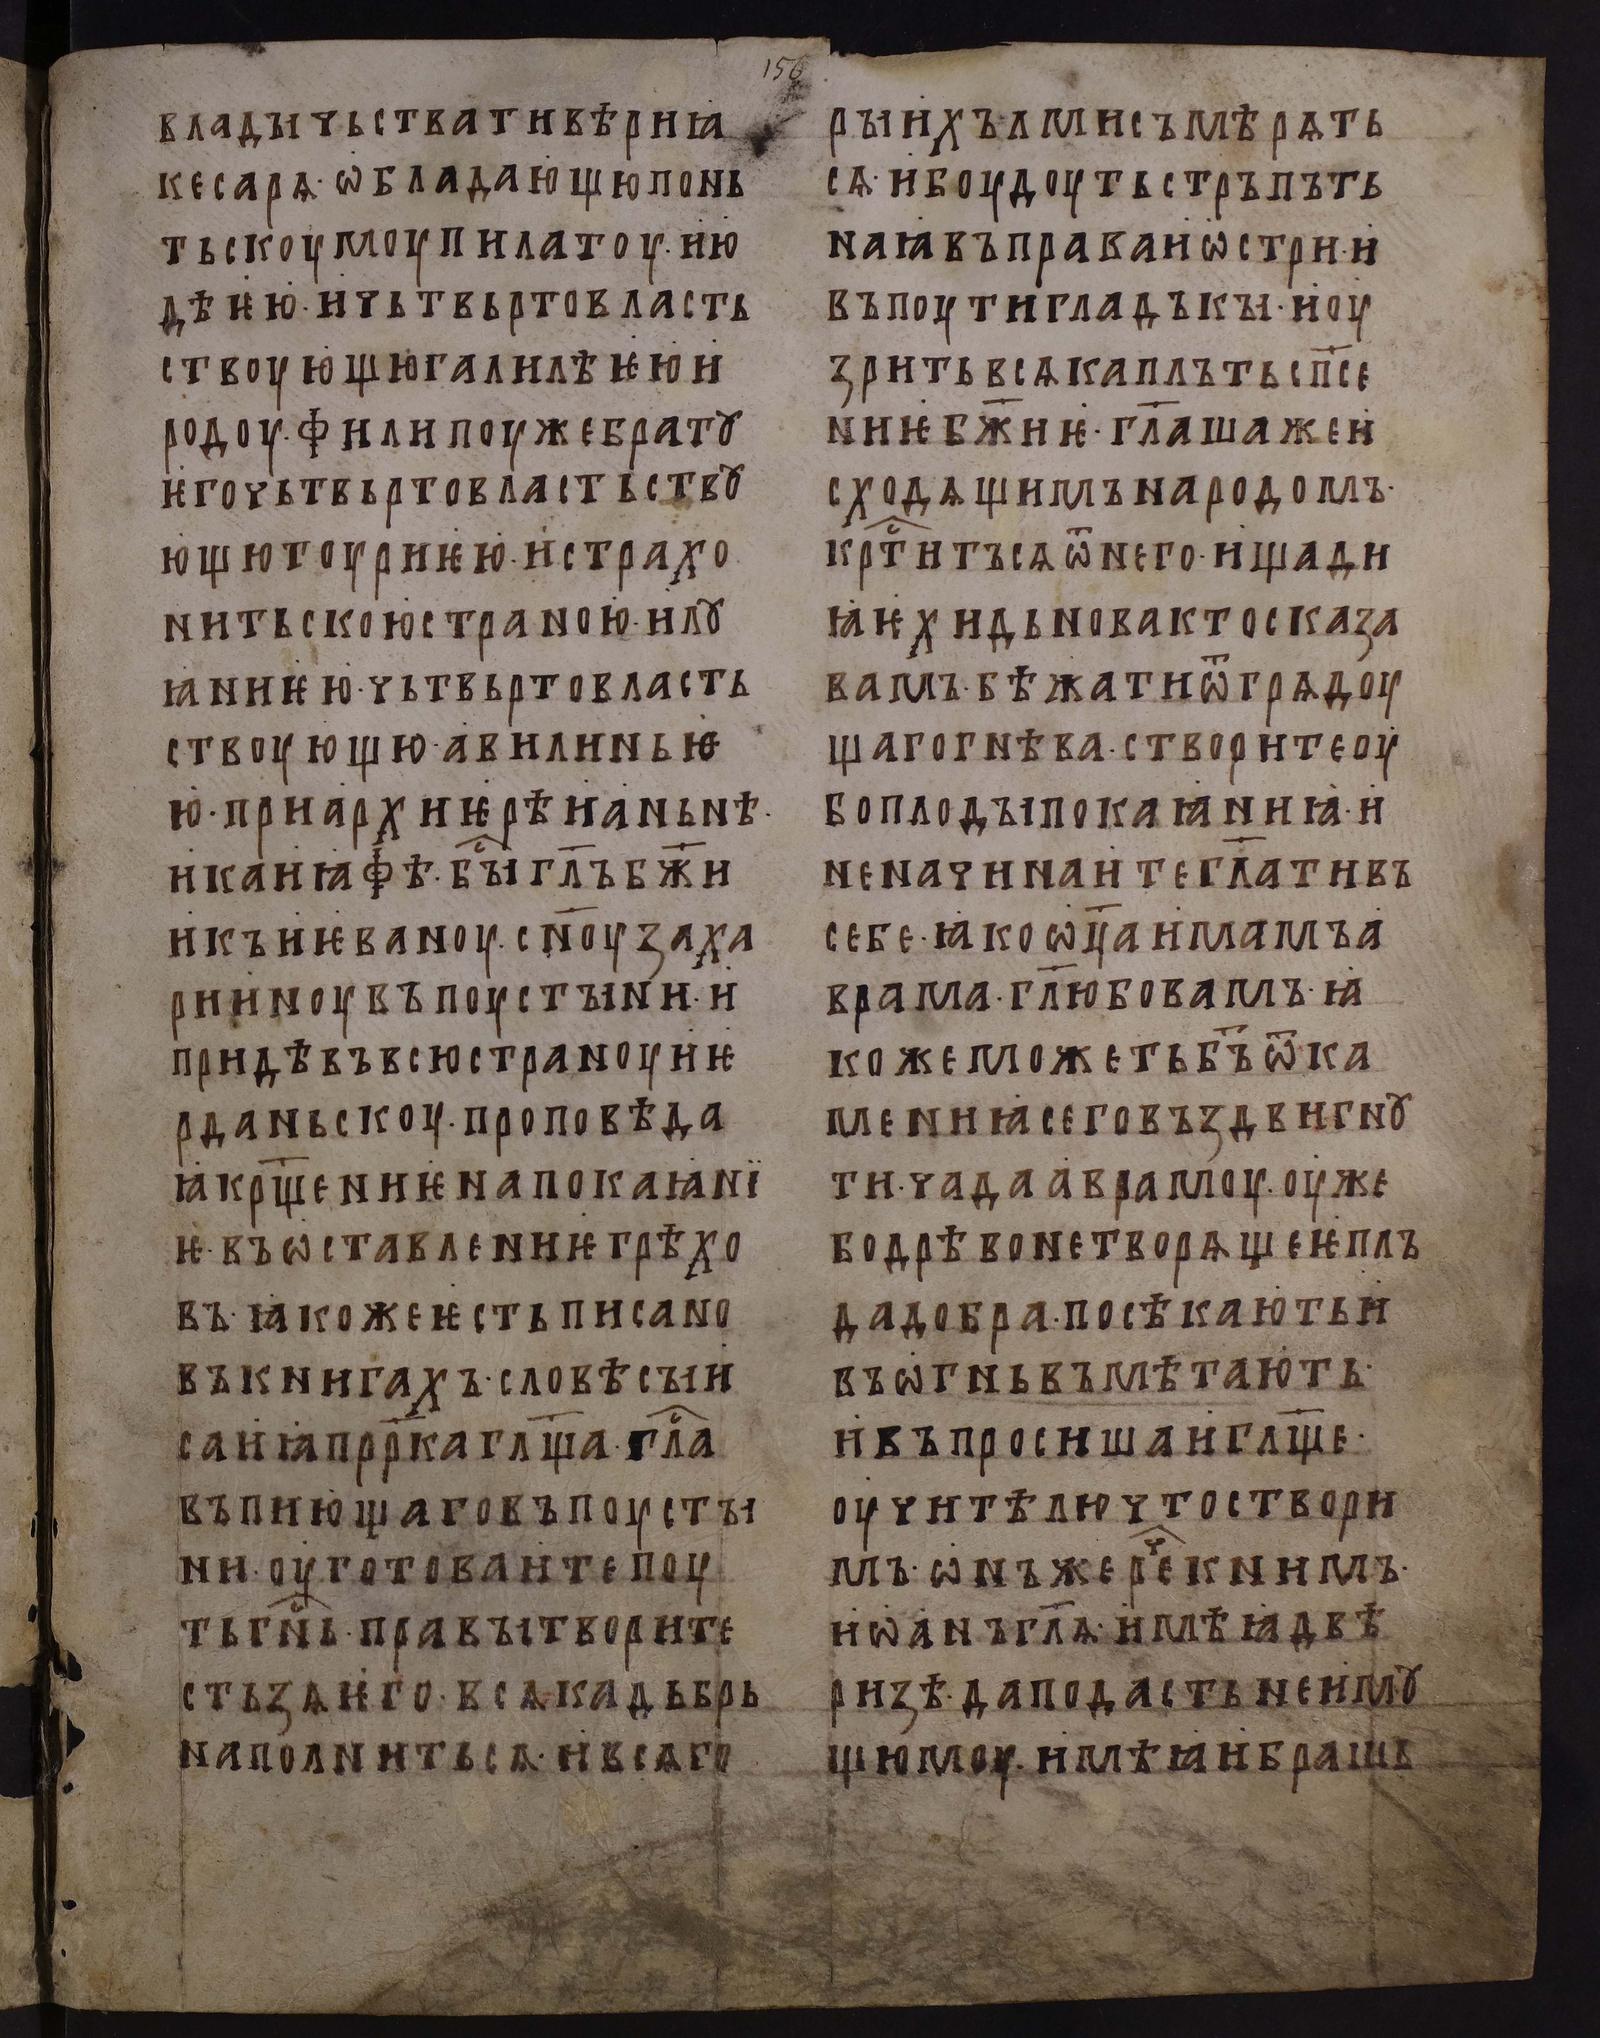 156
владычьствативѣриꙗ
кесарѧ·ѡбладающюпонь
тьскоумоупилатоу·ию
дѣѥю·ичьтвьртовласть
ствоующюгалилѣѥюи
родоу·филипоужебратꙋ
ѥгочьтвьртовластьствꙋ
ющютоуриѥю·истрахо
нитьскоюстраною·илꙋ
ꙗниѥю·чьтвьртовласть
ствоующю·авилиньѥ
ю·приархиѥрѣианьнѣ·
икаиꙗфѣ·бы҇гл҃ъбж҃и
икъиѥваноу·сн҃оузаха
рииноувъпоустыни·и
придѣвъвсюстраноуиѥ
рданьскоу·проповѣда
ꙗкрщ҃ениѥнапокаꙗнї
ѥ·въѡставлениѥгрѣхо
въ·ꙗкожеѥстьписано
въкнигахъ·словѣсыи
саиꙗпррⷪ҇҃кагл҃ща·гла҇
въпиющаговъпоусты
ни·оуготоваитепоу
тьгн҇ь·правытворите
стьзѧѥго·всѧкадьбрь
наполнитьсѧ·ивсѧго
рыихълмисъмѣрѧть
сѧ·ибоудоутьстръпъть
наꙗвъправаиѡстри·и
въпоутигладъкы·иоу
зритьвсѧкаплътьсп҃се
ниѥбж҃иѥ·гл҃ашажеи
сходѧщимънародомъ·
крт҇итъсѧѿнего·ищади
ꙗѥхидьновактосказа
вамъ·бѣжатиѿгрѧдоу
щагогнѣва·створитеоу
боплодыпокаꙗниꙗ·и
неначинаитегл҃ативъ
себе·ꙗкоѡц҃аимамъа
врама·гл҃юбовамъ·ꙗ
кожеможетьбъ҃ѿка
мениꙗсеговъздвигнꙋ
ти·чадааврамоу·оуже
бодрѣвонетворѧщеѥплъ
дадобра·посѣкаютьи
въѡгньвъмѣтають·
ивъпросишаигл҃ще·
оучитѣлючтоствори
мъ·ѡнъжерⷱ҇екнимъ·
иѡанъгл҃ѧ·имѣꙗдвѣ
ризѣ·даподастьнеимꙋ
щюмоу·имѣꙗибрашь